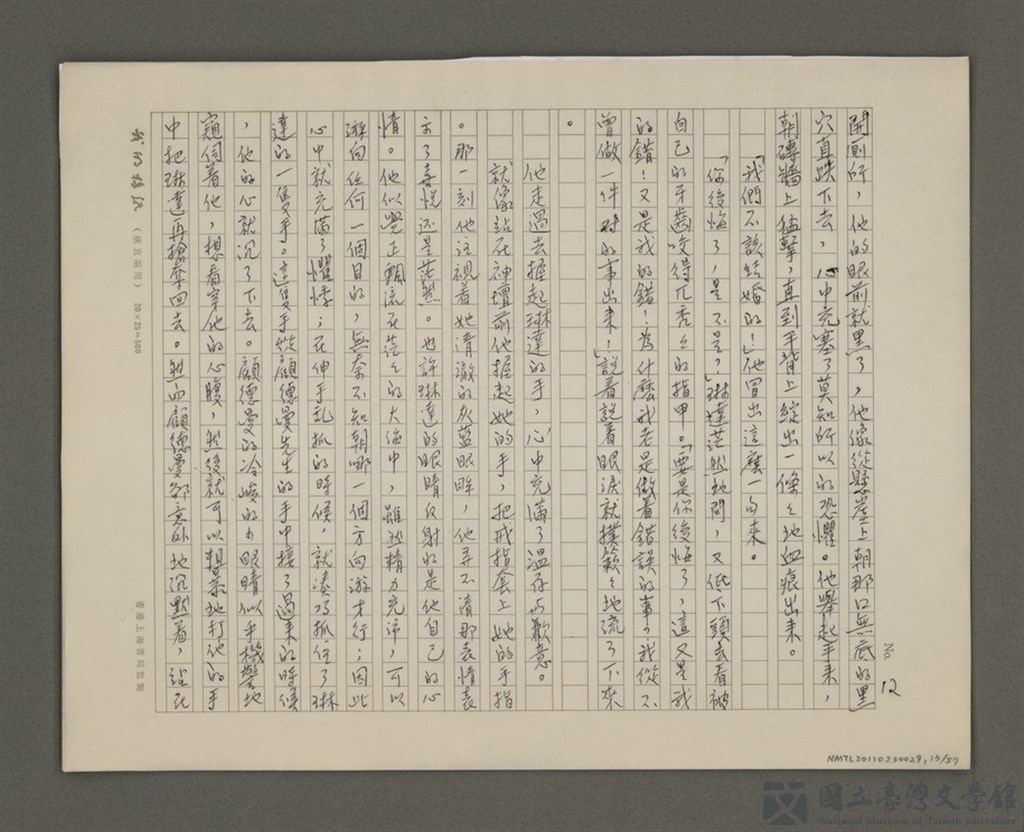 No. 12
開廁所，他的眼前就黑了，他像從懸崖上朝那口無底的黑
穴直跌下去，心中充塞了莫知所以的恐懼。他舉起手來，
朝磚牆上猛擊，直到手背上綻出一條々地血痕出来。
「我們不該結婚的！」他冒出這麼一句來。
「你後悔了，是不是？」琳達茫然地問，又低下頭去看被
自己的牙齒咬得兀禿々的指甲。「要是你後悔了，這又是我
的錯！又是我的錯！為什麼我老是做着錯誤的事？我從不
曾做一件對的事出来！」說着說着眼淚就撲簌々地流了下來
。
他走過去握起琳達的手，心中充滿了溫存与歉意。
就像站在神壇前他握起她的手，把戒指套上她的手指
。那一刻他注視着她清澈的灰藍眼眸，他弄不清那表情表
示了喜悅还是茫然。也許琳達的眼睛反射的是他自己的心
情。他似覺正飄流在茫々的大海中，雖然精力充沛，可以
游向任何一個目的，無奈不知朝哪一個方向游才行；因此
心中就充滿了懼悸；在伸手乱抓的時候，就湊巧抓住了琳
達的一隻手。這隻手從顧德曼先生的手中接了過来的時候
，他的心就沉了下去。顧德曼的冷峻的眼睛似乎機警地
窺伺着他，想看穿他的心腹，然後就可以地打他的手
中把琳達再搶奪回去。然而顧德曼卻意外地沉默着，站在
（橫直兩用） 20×25=500
香港上海書局監製
NMTL20110230029, 13/57
國立臺灣文學館
National Museum of Taiwan Literature